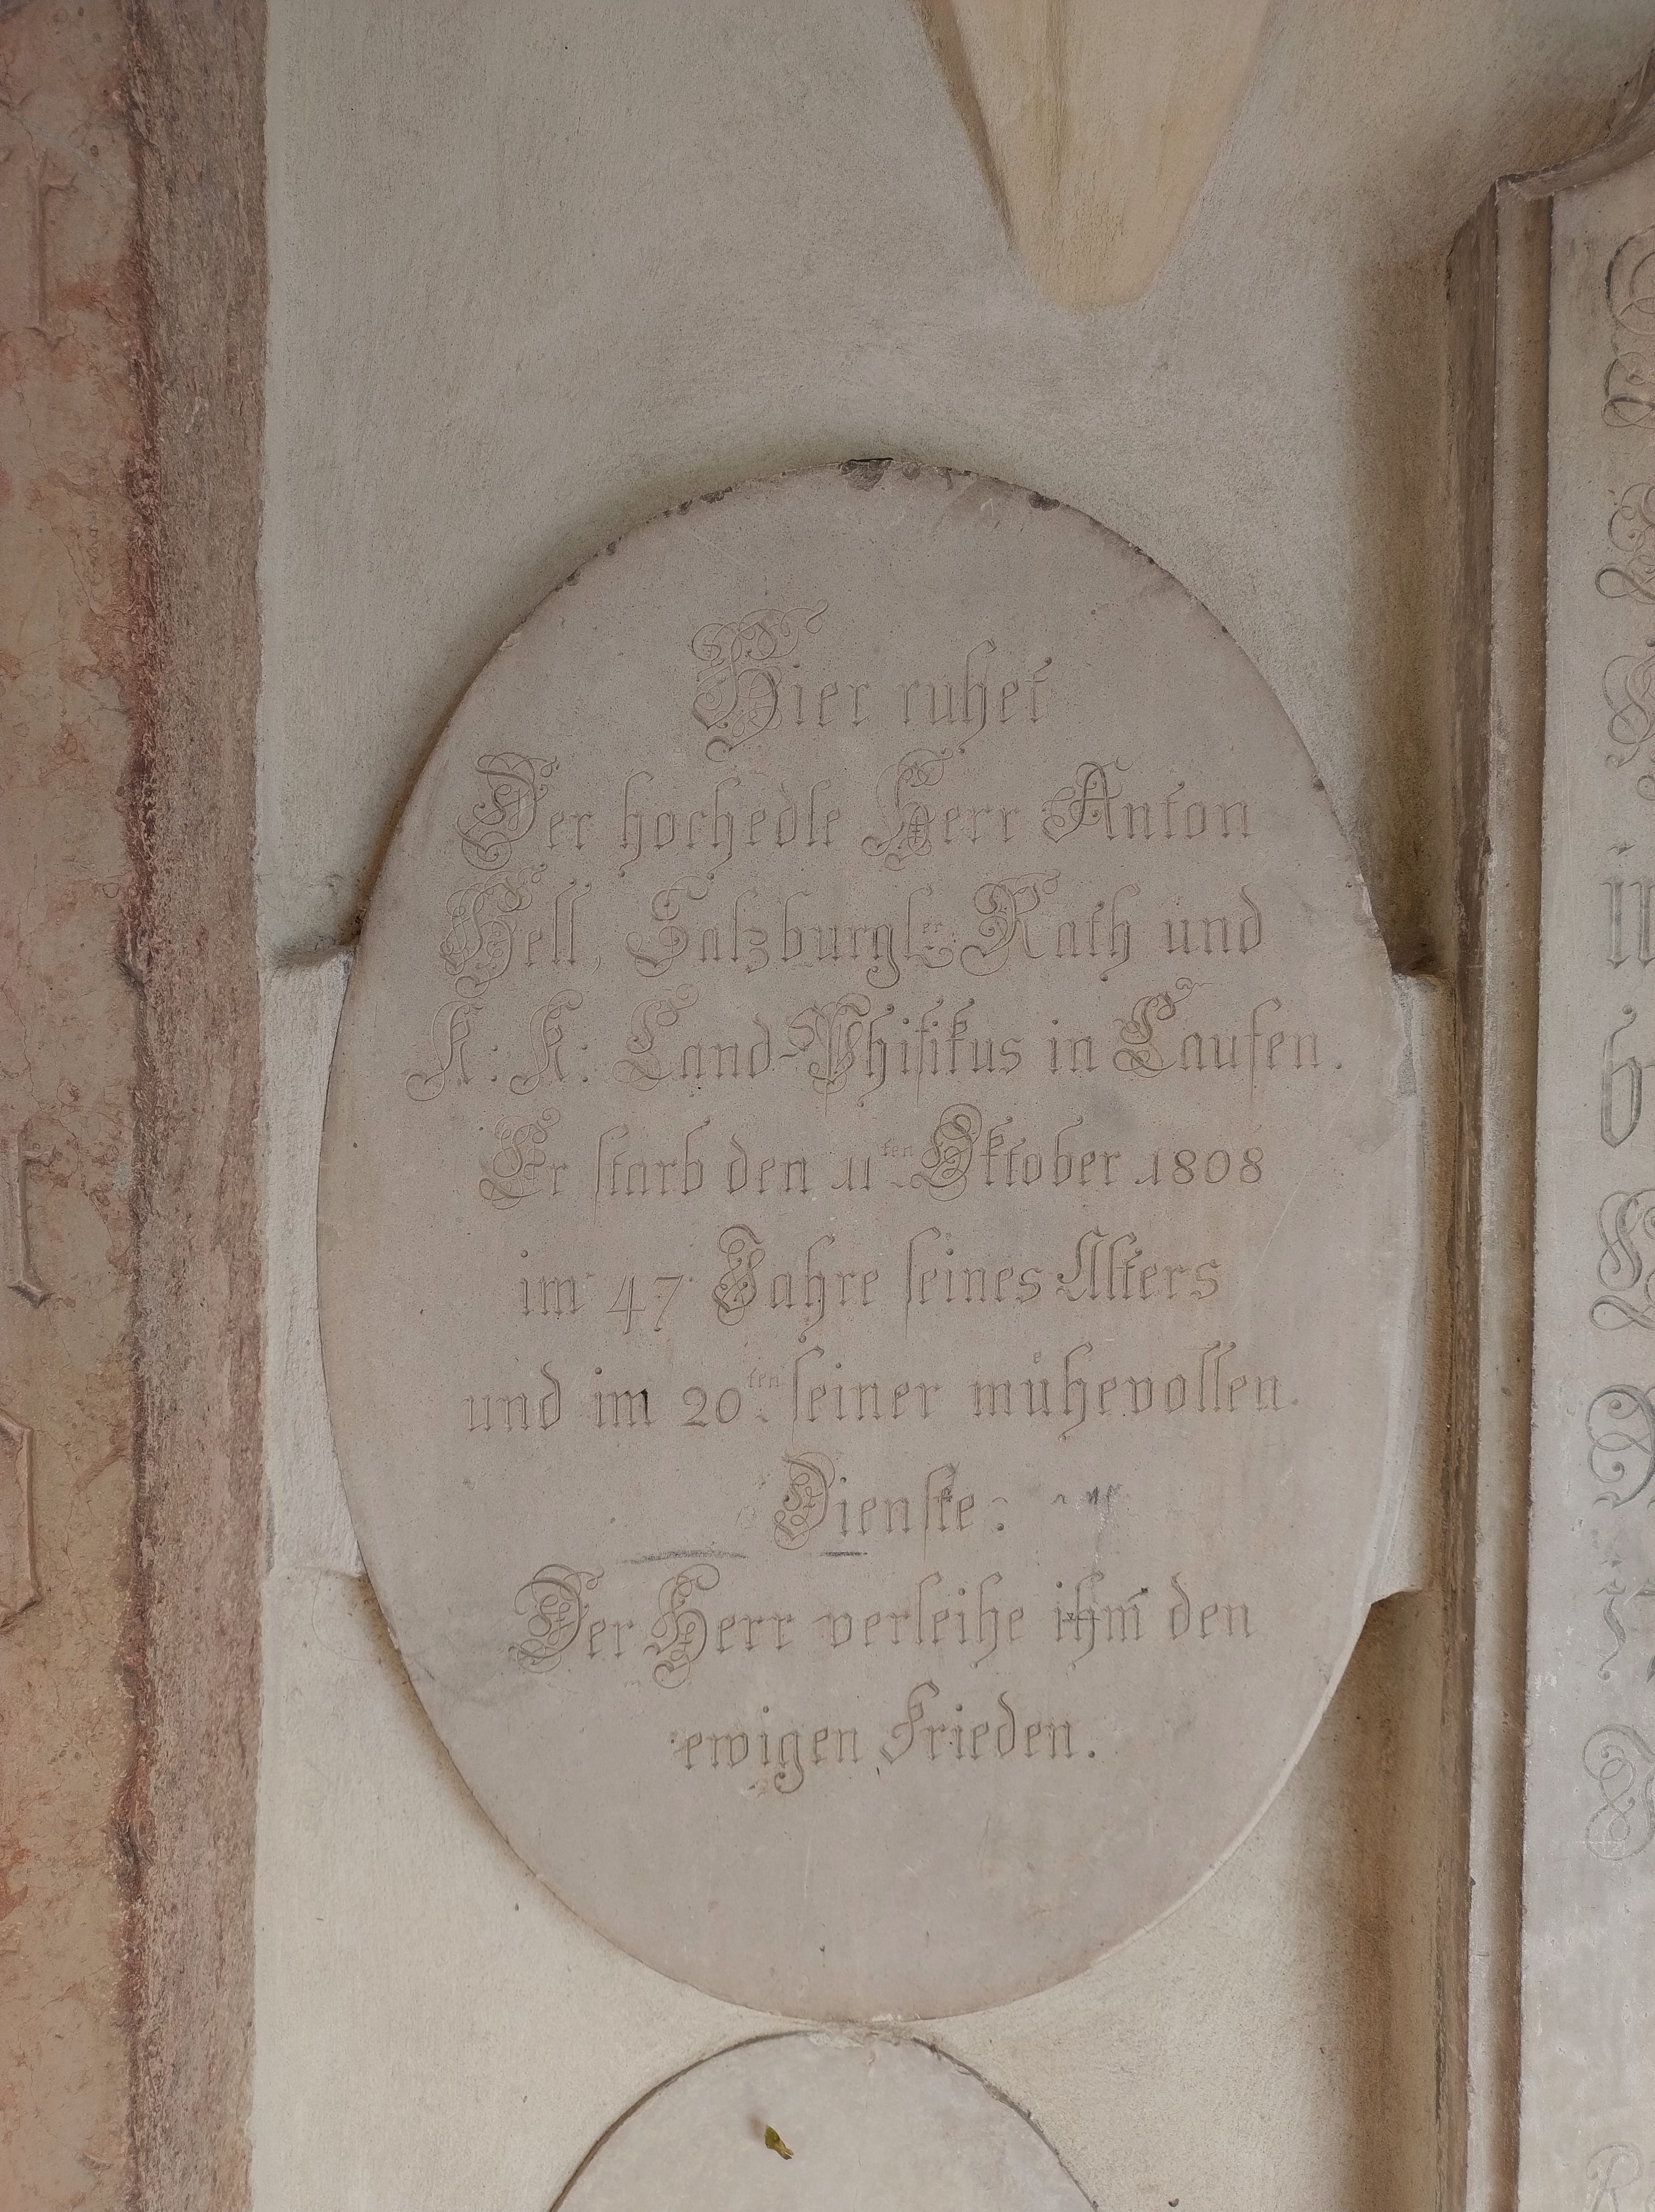 Hier ruhet
Der hochedle Herr Anton
Hell, Salzburgl:er Rath und
K: K: Land-Phisikus in Laufen.
Er starb den 11ten Oktober 1808
im 47 Jahre seines Alters
und im 20ten seiner mühevollen
Dienste:
Der Herr verleihe ihm den
ewigen Frieden.